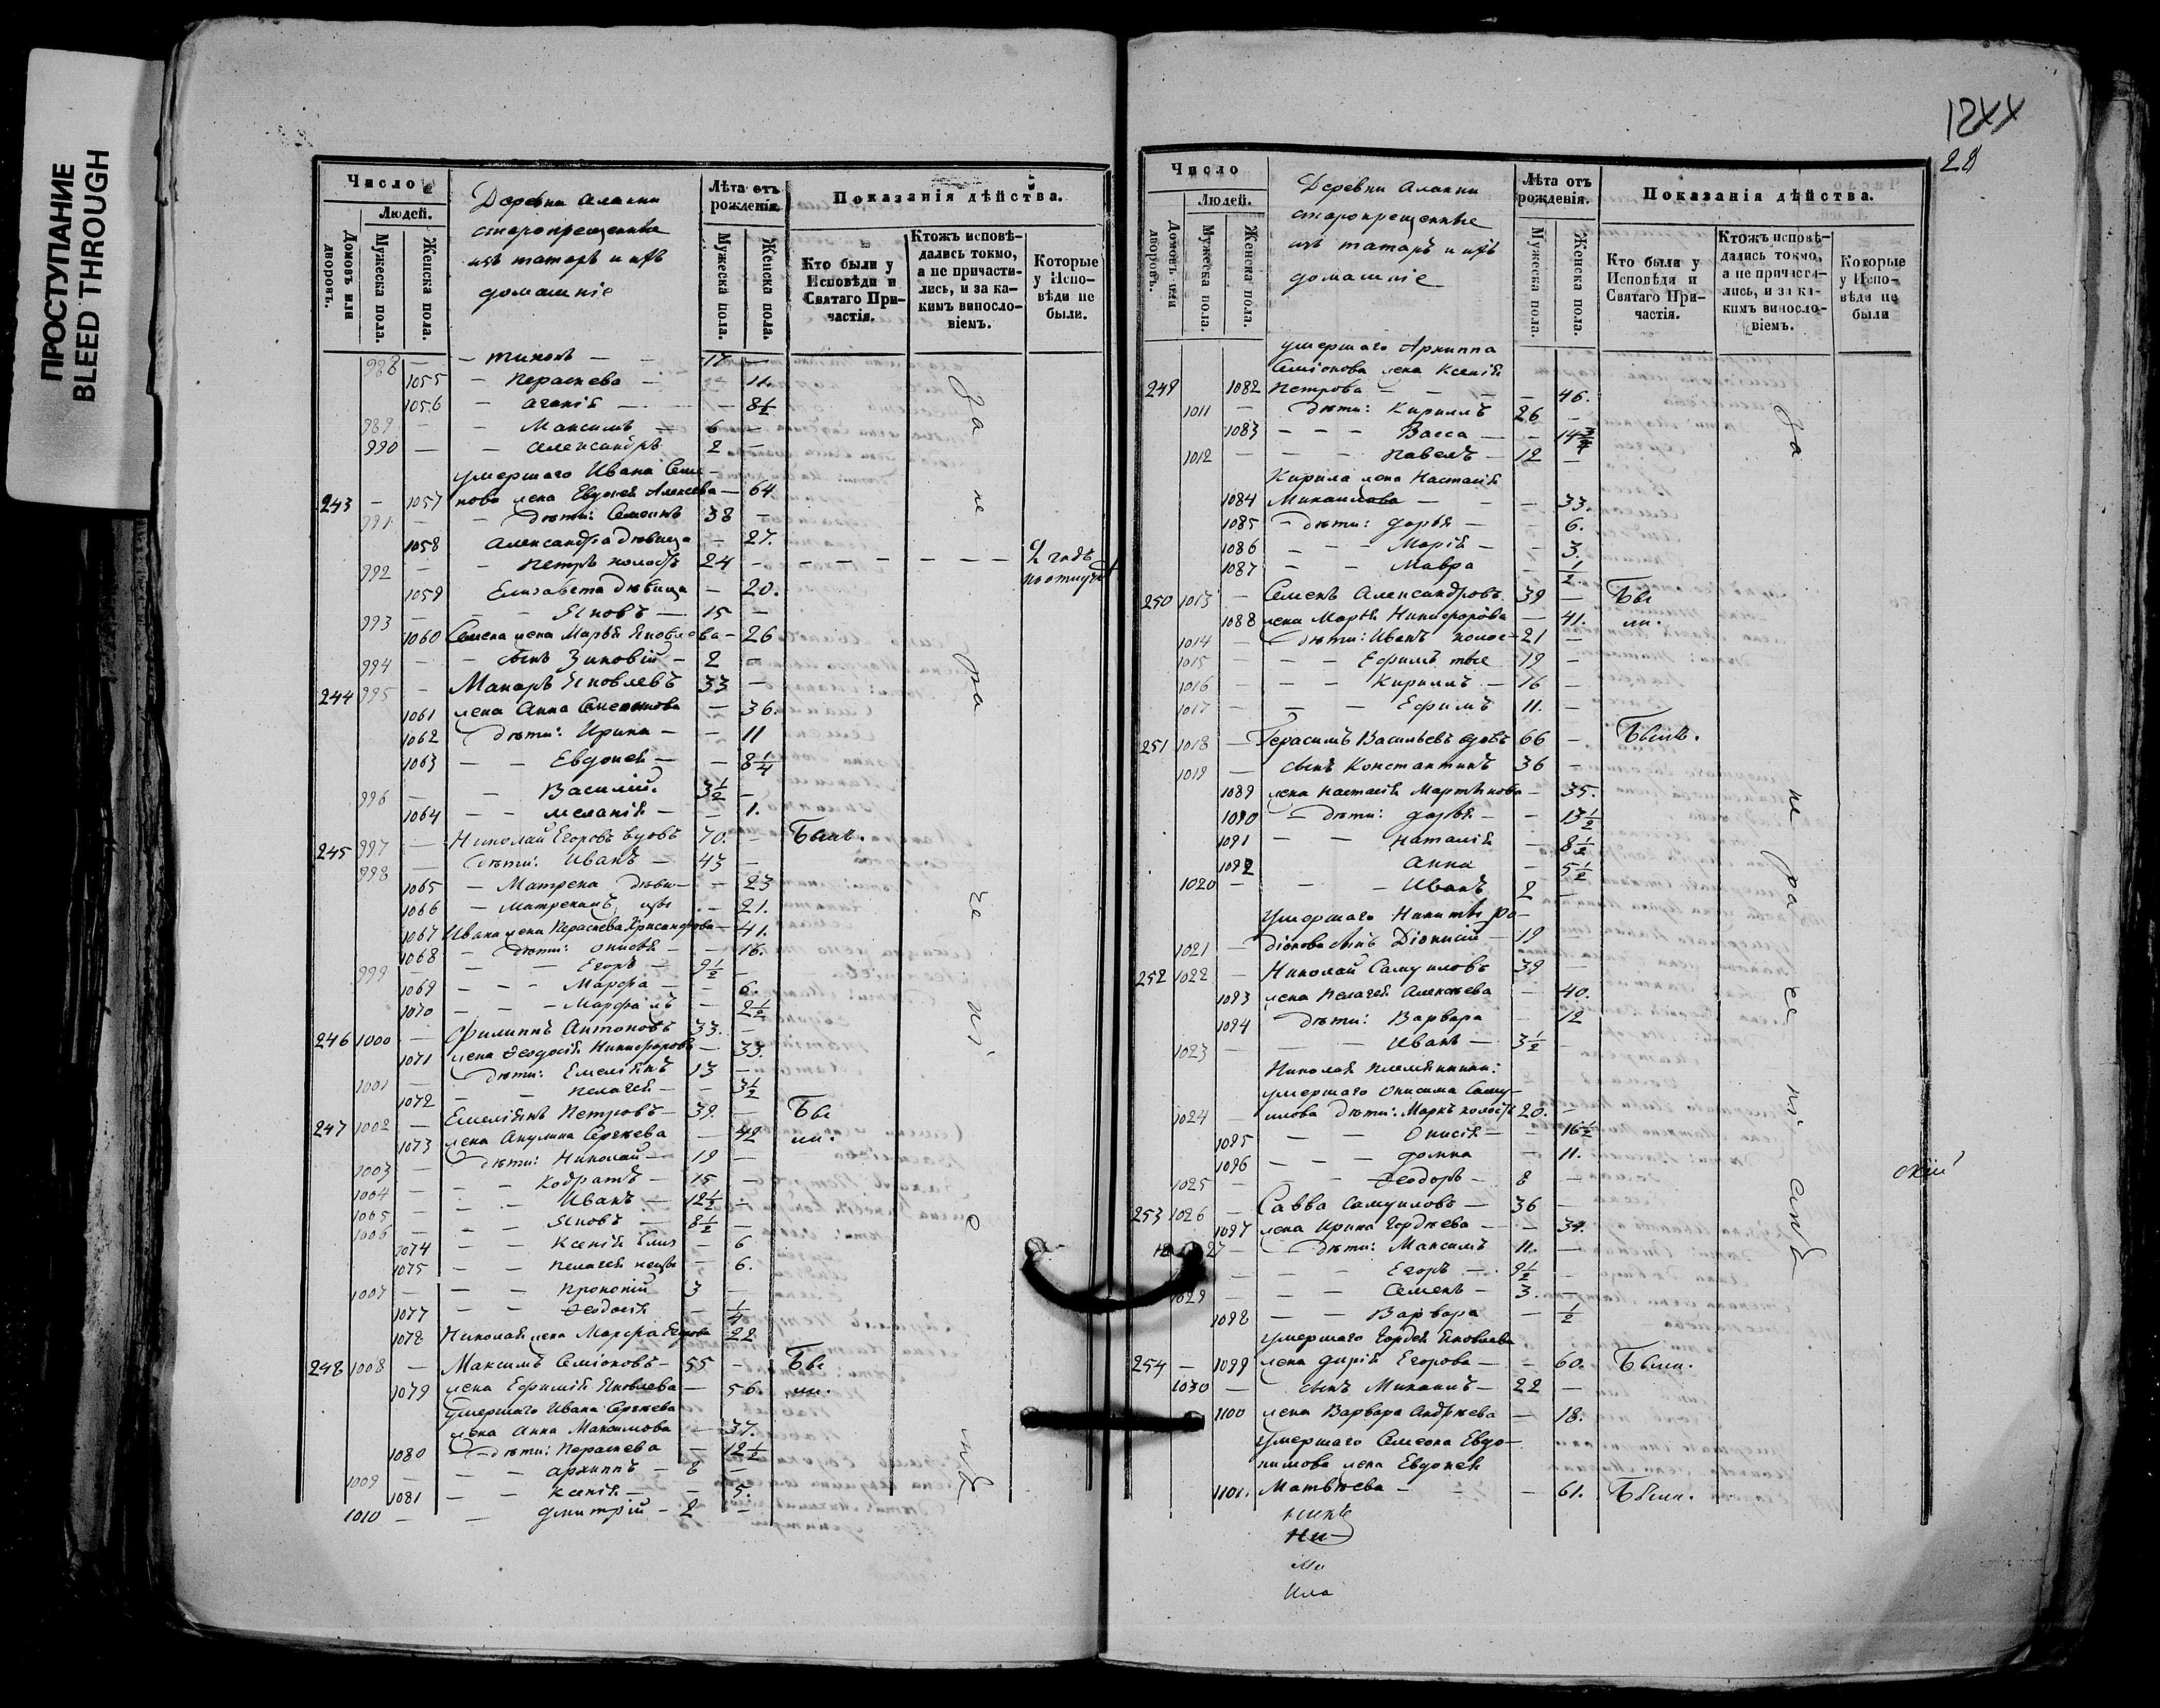 ПРОСТУПАНИЕ
BLEED THROUGH
Число
Людей.
Домовъ или дворовъ.
Мужеска пола.
Женска пола.
Деревни Аланки
старокрещенные
изъ татаръ и ихъ
домашніе
Лѣта отъ рожденія.
Мужеска пола.
Женска пола.
Показанія дѣйства.
Кто были у Исповѣди и Святаго Причастія.
Ктожъ исповѣдались токмо, а не причастились, и за какимъ винословіемъ.
Которые у Исповѣди не были.
988 — — Тихонъ — 17 —
1055 — Параскева — — 11.
1056 — Агаѳія — — 8½
989 — — Максимъ — 6 —
990 — — Александръ 2 —
умершаго Ивана Семе-
243 — 1057 нова жена Евдокія Алексѣева — 64
991 — — дѣти: Семенъ 38 —
1058 Александра дѣвица — 27.
992 — — Петръ холостъ 24 —
1059 Елизавета дѣвица — 20.
993 — — Яковъ — 15 —
1060 Семена жена Марья Яковлева — 26
994 — — сынъ Зиновій — 2 —
244 995 — Макаръ Яковлевъ 33 —
1061 жена Анна Семенова — 36.
1062 дѣти: Ирина — — 11
1063 — — Евдокія — — 8¼
996 — — Василій. 3½ —
1064 — — Меланія — — 1.
245 997 — Николай Егоровъ вдовъ 70. — Былъ.
998 — дѣти: Иванъ — 43 —
1065 — Матрена дѣви- — 23
1066 — — 21.
1067 Ивана жена Параскева — 41.
1068 — дѣти: Анисья — 16.
999 — — Егоръ — 9½ —
1069 — — — Марфа — — 6.
1070 — — — Марфа — 2½
246 1000 — Филиппъ Антоновъ 33. —
1071 жена Ѳеодосія Никифорова — 33.
1001 — дѣти: Емельянъ 13 —
1072 — — Пелагея — — 3½
247 1002 — Емельянъ Петровъ — 39. — Бы
1073 жена Акулина Сергѣева — 42 ли.
1003 — дѣти: Николай — 19 —
1004 — — — Кодратъ — 15 —
1005 — — — Иванъ — 12½ —
1006 — — — Яковъ — 8½ —
1074 — — Ксенія близ — 6
1075 — — Пелагея — 6.
1007 — — — Прокопій 3 —
1077 — — Ѳеодосія — ¼
1078 Николая жена Марфа Егорова 22
248 1008 — Максимъ Семіоновъ — 55 — Бы
1079 жена Ефимія Яковлева — 56. ли.
умершаго Ивана Сергѣева
жена Анна Максимова — 37.
1080 — дѣти: Параскева — 12½
1009 — — — Архиппъ — 8 —
1081 — — Ксенія — — 5.
1010 — — Дмитрій — 2 —
12
28
Число
Людей.
Домовъ или дворовъ.
Мужеска пола.
Женска пола.
Деревни Аланки
старокрещенные
изъ татаръ и ихъ
домашніе
Лѣта отъ рожденія.
Мужеска пола.
Женска пола.
Показанія дѣйства.
Кто были у Исповѣди и Святаго Причастія.
Ктожъ исповѣдались токмо, а не причастились, и за какимъ винословіемъ.
Которые у Исповѣди не были
умершаго Архиппа
Семіонова жена Ксенія
249 1082 Петрова — — — 46.
1011 — дѣти: Кириллъ 26 —
1083 — — — Васса — — 14¾
1012 — — — Павелъ — 12 —
Кирила жена Настасія
1084 Михаилова — — — 33.
1085 — дѣти: Дарья — — 6.
1086 — — — Марія — — 3.
1087 — — Мавра — ½
250 1013 — Семенъ Александровъ 39 — Бы
1088 жена Марья Никифорова — 41. ли.
1014 — дѣти: Иванъ холос- 21 —
1015 — — — Ефимъ 19 —
1016 — — — Кириллъ — 16 —
1017 — — — Ефимъ 11. —
251 1018 — Герасимъ Васильевъ вдовъ 66 — Былъ.
1019 — сынъ Константинъ 36 —
1089 жена Настасія Мартынова — 35.
1090 — дѣти: Дарья — — 13½
1091 — — Наталія — 8½
1092 Анна — 5½
1020 — — — Иванъ 2 —
умершаго Никиты Ро-
1021 — діонова сынъ Діонисій — 19 —
252 1022 — Николай Самуиловъ 39 —
1093 жена Пелагея Алексѣева — 40.
1094 дѣти: Варвара — 12
1023 — — — Иванъ — 3½ —
Николая племянники:
умершаго Онисима Саму-
1024 илова дѣти: Маркъ холостъ 20. —
1095 — — Онисія — — 16½
1096 — — — Домна — 11.
1025 — — — Ѳеодоръ — 8 —
253 1026 — Савва Самуиловъ — 36 —
1097 жена Ирина Гордѣева — — 34.
27 — дѣти: Максимъ 11. —
— — — Егоръ — 9½ —
1029 — — — Семенъ — 3. —
1098 — — Варвара — ½
умершаго Гордея Яковлева
254 — 1099 жена Дарія Егорова — — 60. Были.
1030 — сынъ Михаилъ — 22 —
1100 жена Варвара Андрѣева — 18.
умершаго Семена Евдо-
кимова жена Евдокія
1101. Матвѣева — — 61. Были.